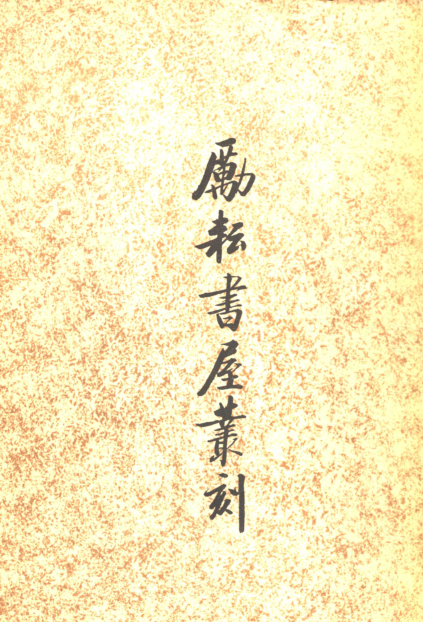 勵耘書屋叢刻